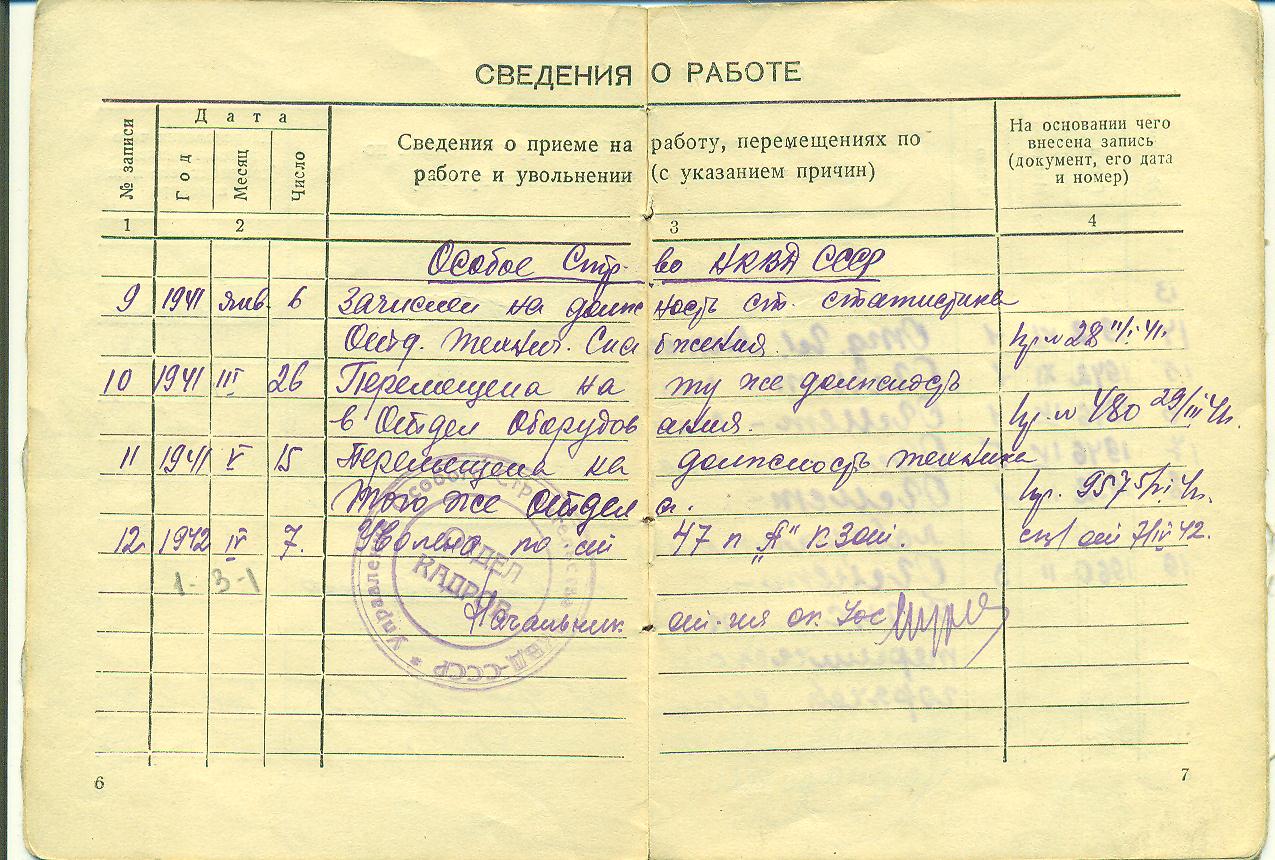 СВЕДЕНИЯ О РАБОТЕ
№ записи
Дата
Год
Месяц
Число
Сведения о приеме на работу, перемещениях по
работе и увольнении (с указанием причин)
На основании чего
внесена запись
(документ, его дата
и номер)
1 2 3 4
Особое Стр-во НКВД СССР
9 1941 янв. 6 Зачислен на должность ст. статистика
Отд. Технич. Снабжения. пр. № 28 41.
10 1941 III 26 Перемещена на ту же должность
в Отдел Оборудования. пр. № 480 29/III 41.
11 1941 V 15 Перемещена на должность техника
того же отдела. пр. 957 41.
12 1942 IV 7. Уволена по ст 47 п „А" КЗот. от 7/IV 42.
1-3-1
Начальник от-ния ок Уос
Управление особого строительства НКВД-СССР *
ОТДЕЛ
КАДРОВ
6
7